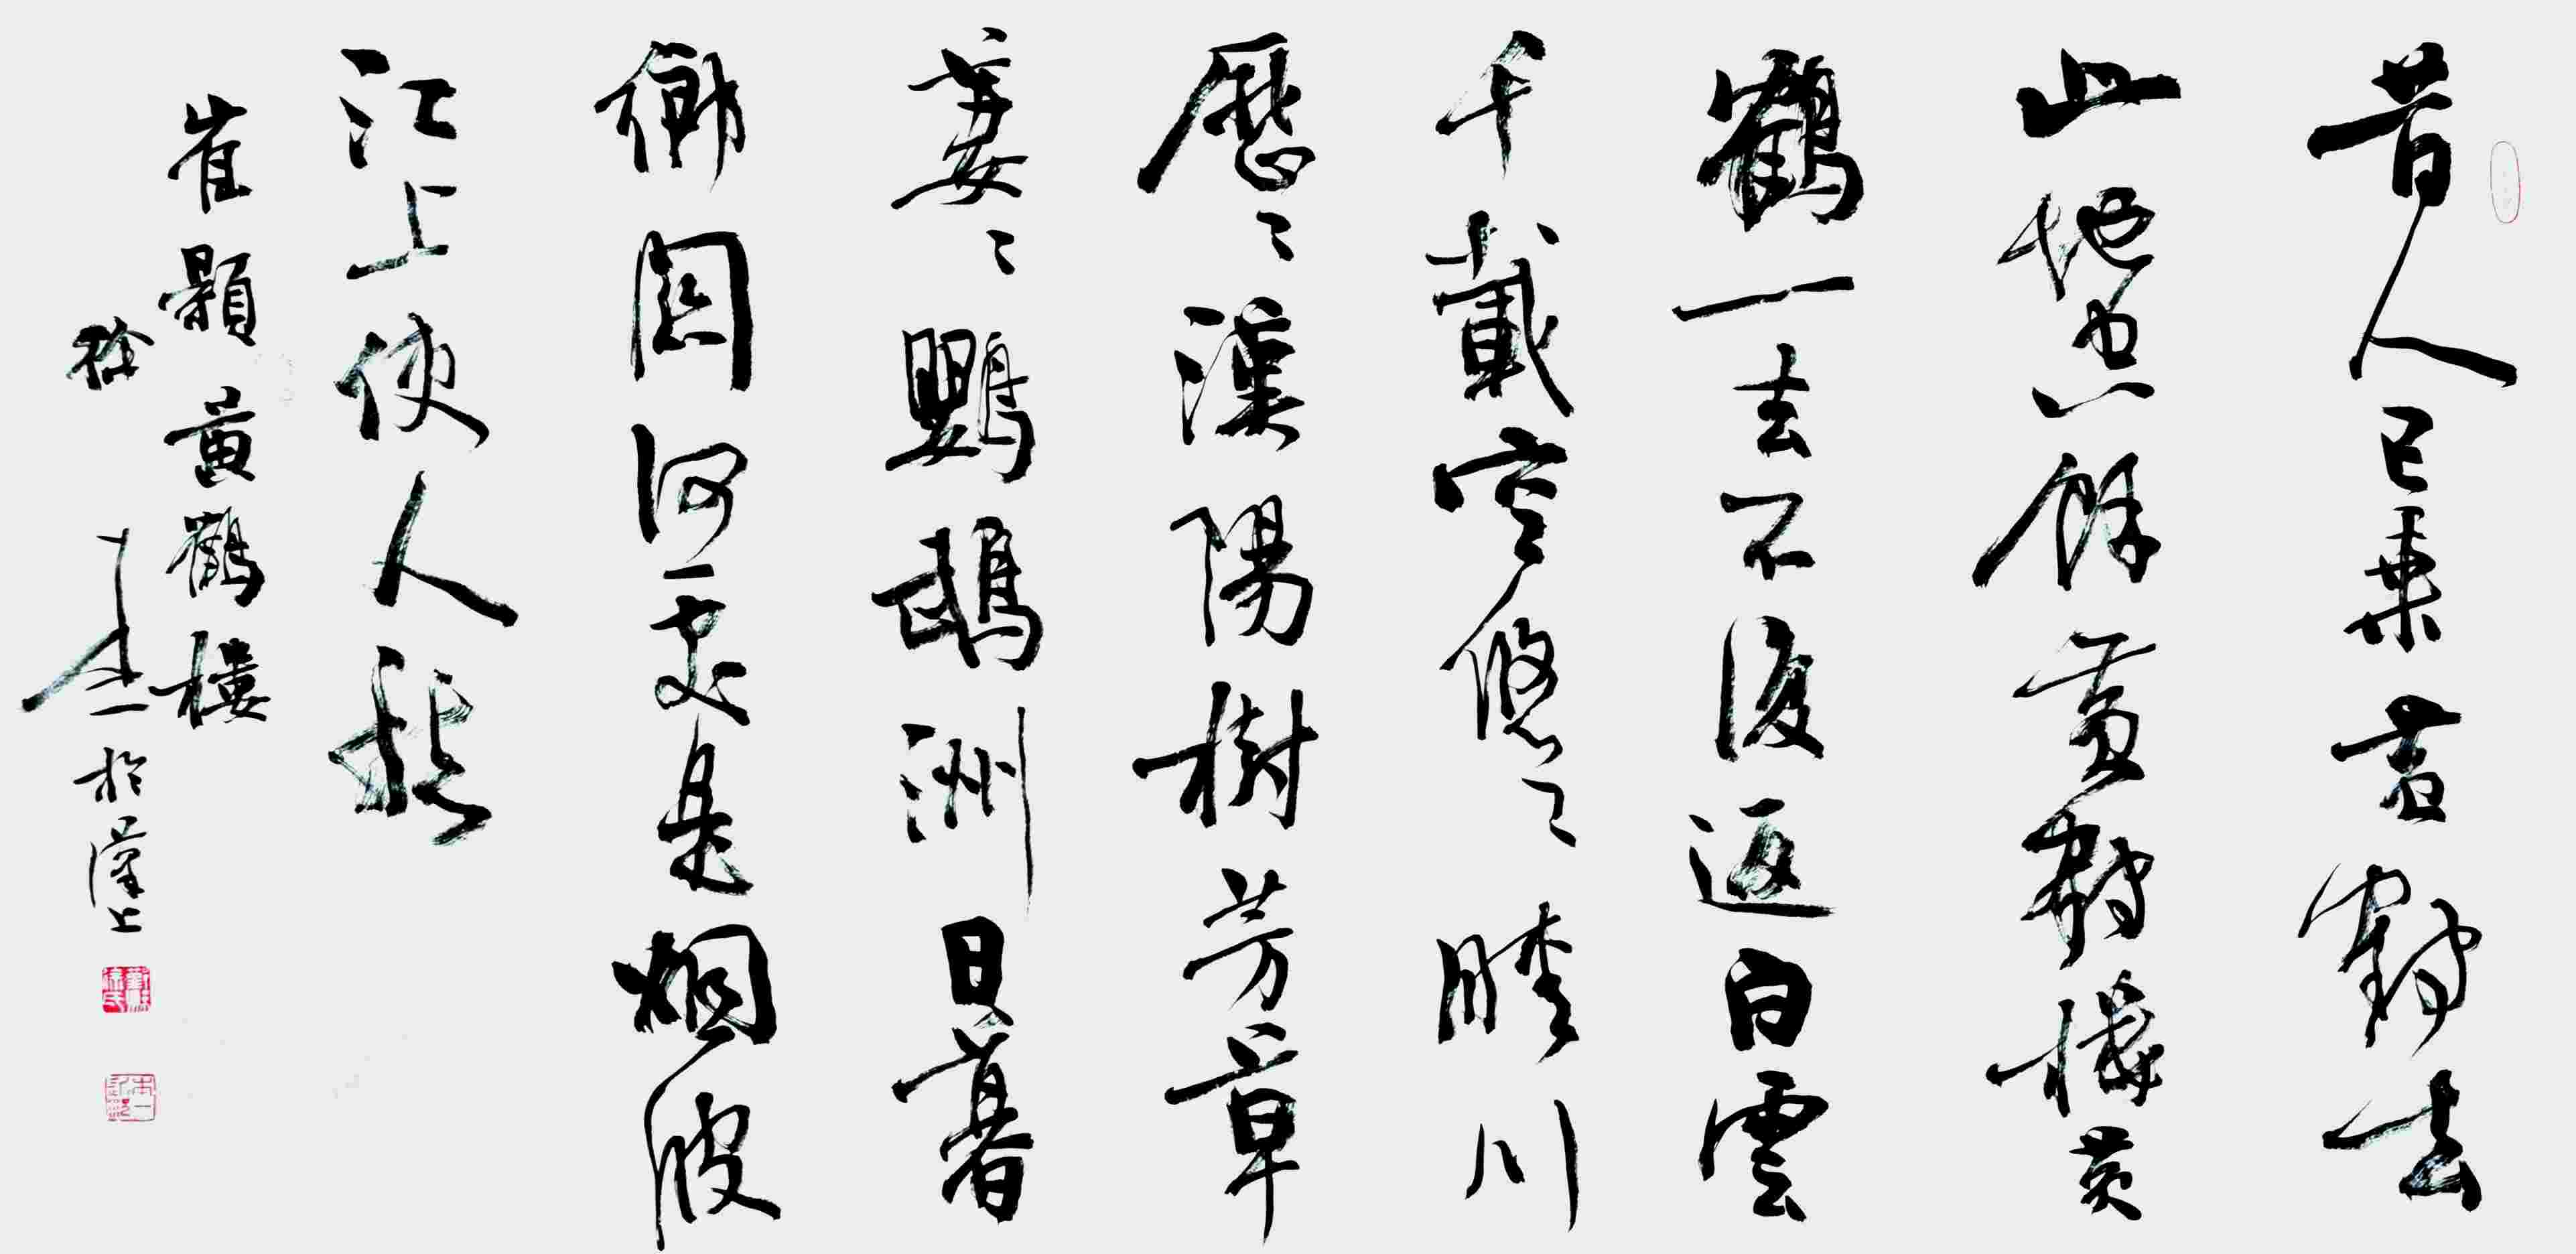 昔人已乗黄鶴去
此地空餘黄鶴樓黄
鶴一去不復返白雲
千載空悠々晴川
歷々漢陽樹芳草
萋々鸚鵡洲日暮
鄉關何處是烟波
江上使人愁
崔顥黄鶴樓
徐本一於漢上